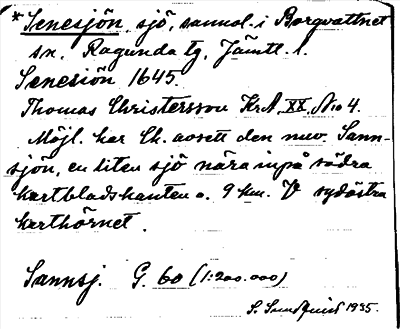 *Senesjön, sjö, sannol. i Borgvattnet
sn, Ragunda tg, Jämtl. l.
Senesiön 1645.
Thomas Christersson KrA, XX, No 4.
Möjl. har Ch. avsett den nuv. Sann-
sjön, en liten sjö nära inpå södra
kartbladskanten o. 9 km. V sydöstra
karthörnet.
Sannsj. G. 60 (1:200.000)
S. Sundquist 1935.